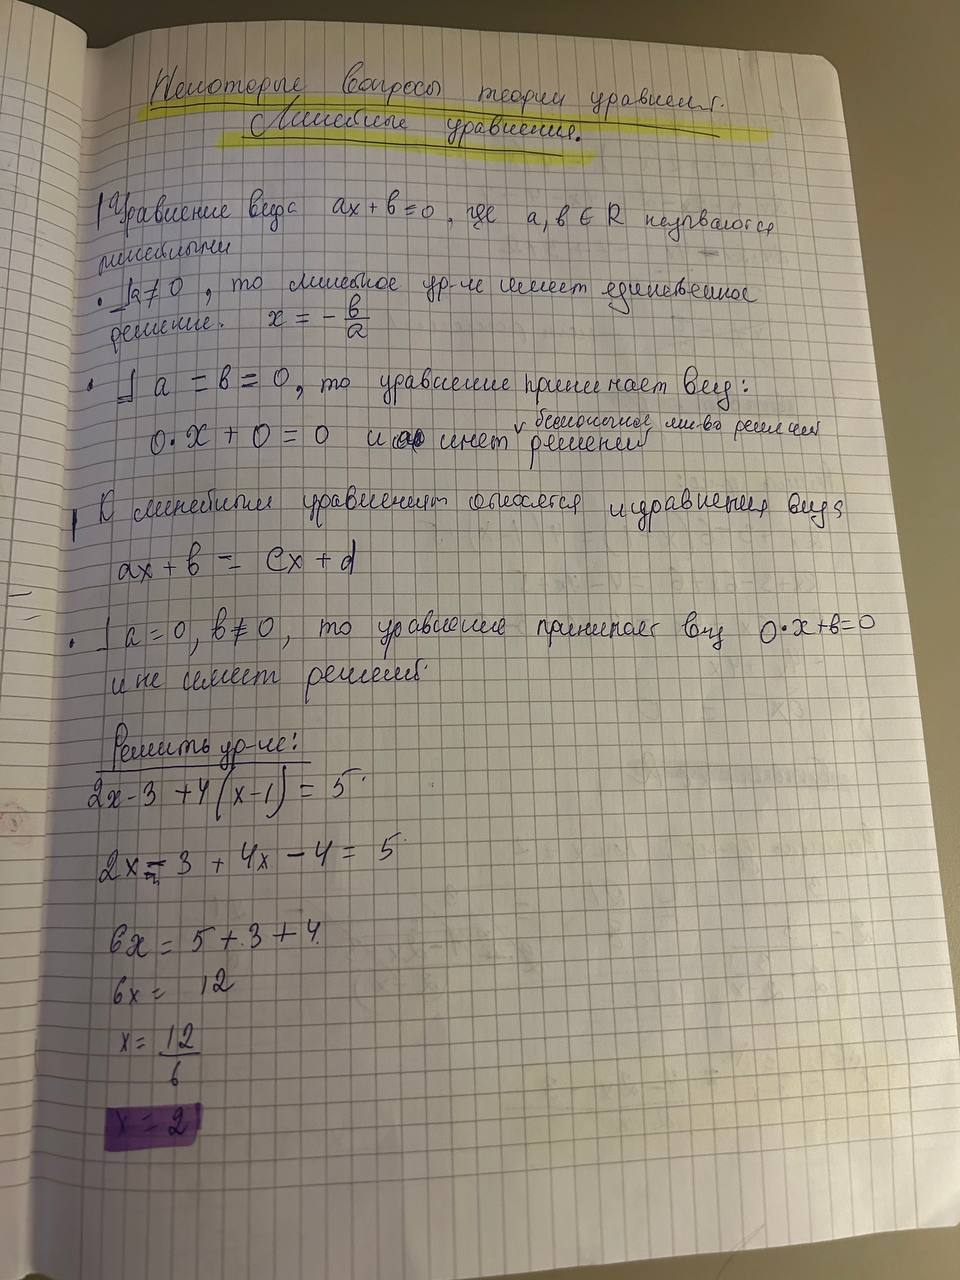 Некоторые вопросы теории уравнен.
Линейные уравнения.
Уравнение вида ax + b = 0, где a, b ∈ R называются
линейными
• ⅃ a ≠ 0, то линейное ур-ие имеет единственное
решение. x = - b/a
• ⅃ a = b = 0, то уравнение принимает вид:
бесконечное мн-во решений
0 • x + 0 = 0 и имеет решений
К линейным уравнениям относятся и уравнения вида
ax + b = cx + d
• ⅃ a = 0, b ≠ 0, то уравнение принимает вид 0 • x + b = 0
и не имеет решений.
Решить ур-ие:
2x - 3 + 4(x - 1) = 5
2x - 3 + 4x - 4 = 5
6x = 5 + 3 + 4
6x = 12
x = 12/6
x = 2